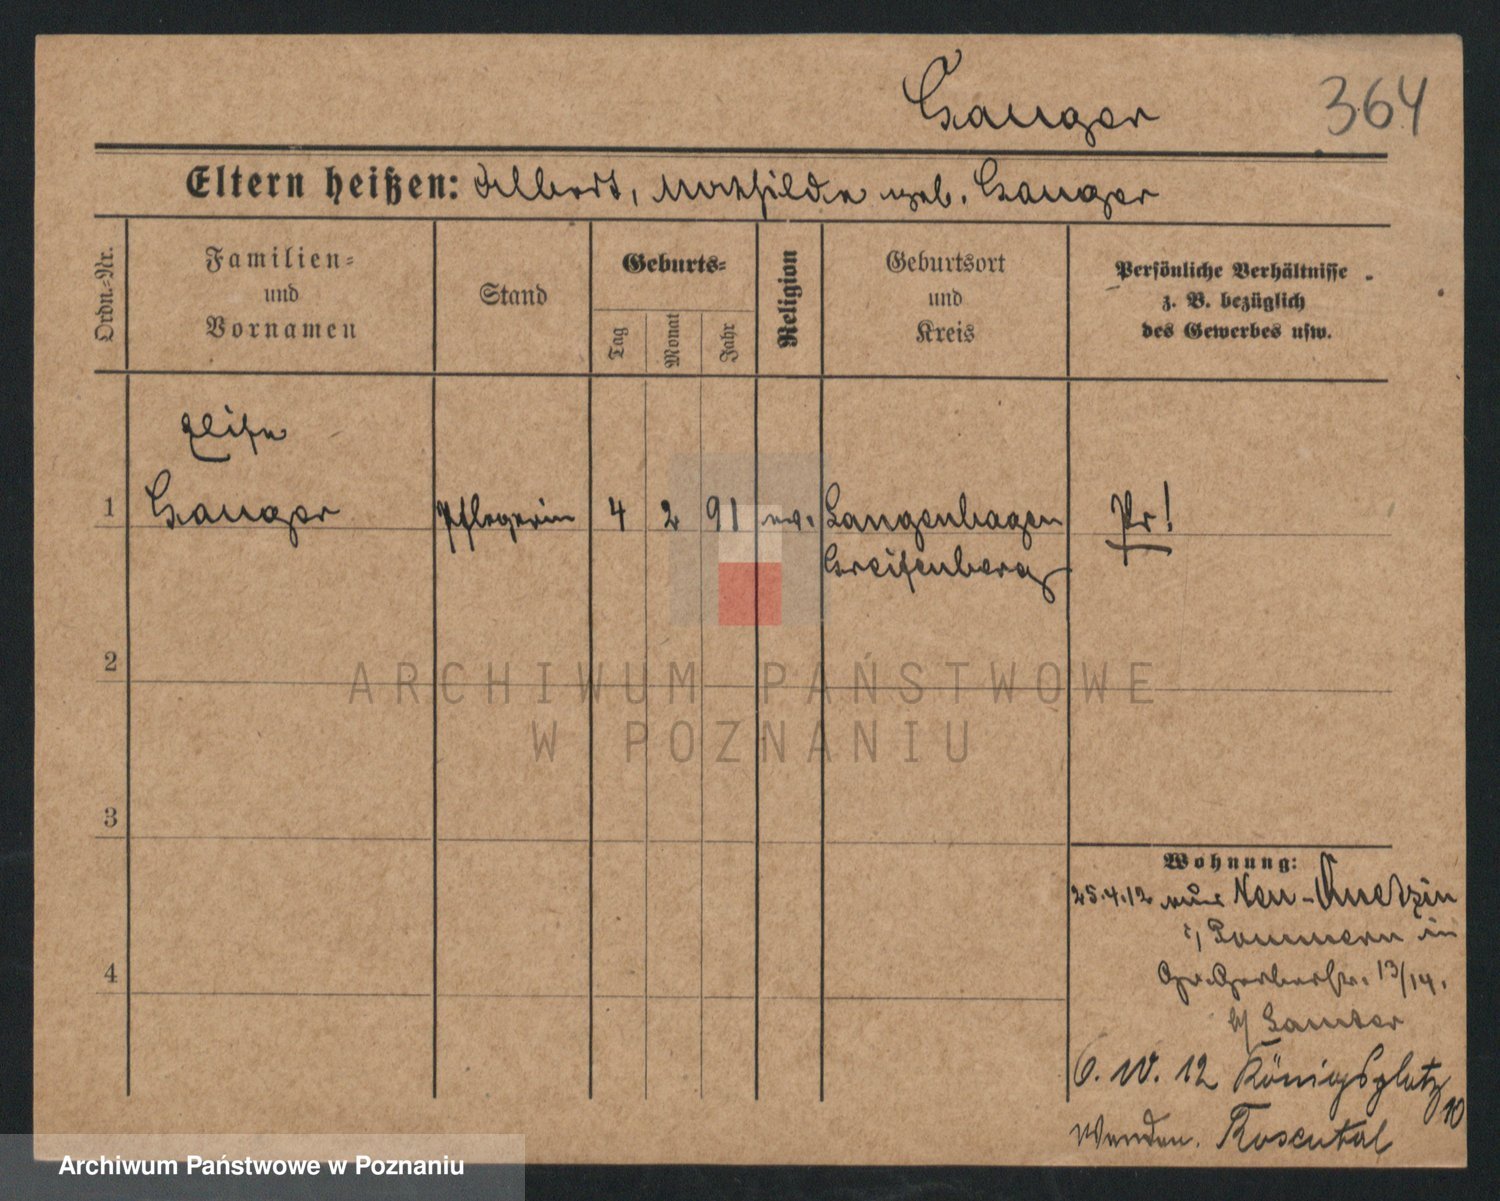 Sanger 364
Eltern heißen: Albert, Mathilde geb. Sanger
Ordn.=Nr.
Familien=
und
Vornamen
Stand
Geburts=
Tag
Monat
Jahr
Religion
Geburtsort
und
Kreis
Persönliche Verhältnisse
z. B. bezüglich
des Gewerbes usw.
Elise
1 Sanger Pflegerin 4 2 91 ev. Langenhagen Pr!
Greifenberg
2
3
4
Wohnung:
25.4.12 aus Neu-
Pommern in
Gr. Gerberstr. 13/14.
b/
6. IV. 12 Königsplatz
10
Wenden. Rosental
ARCHIWUM PAŃSTWOWE
W POZNANIU
Archiwum Państwowe w Poznaniu